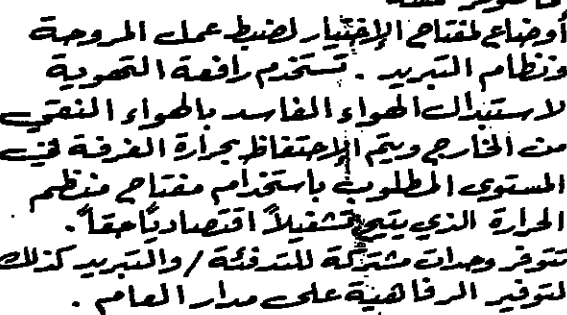 أوضاع لمفتاح الإختيار لضبط عمل المروحة
ونظام التبريد . تستخدم رافعة التهوية
لاستبدال الهواء الفاسد بالهواء النقي
من الخارج ويتم الإحتفاظ بحرارة الغرفة في
المستوى المطلوب باستخدام مفتاح منظم
الحرارة الذي يتيح تشغيلاً اقتصادياً حقاً .
تتوفر وحدات مشتركة للتدفئة / والتبريد كذلك
لتوفير الرفاهية على مدار العام .